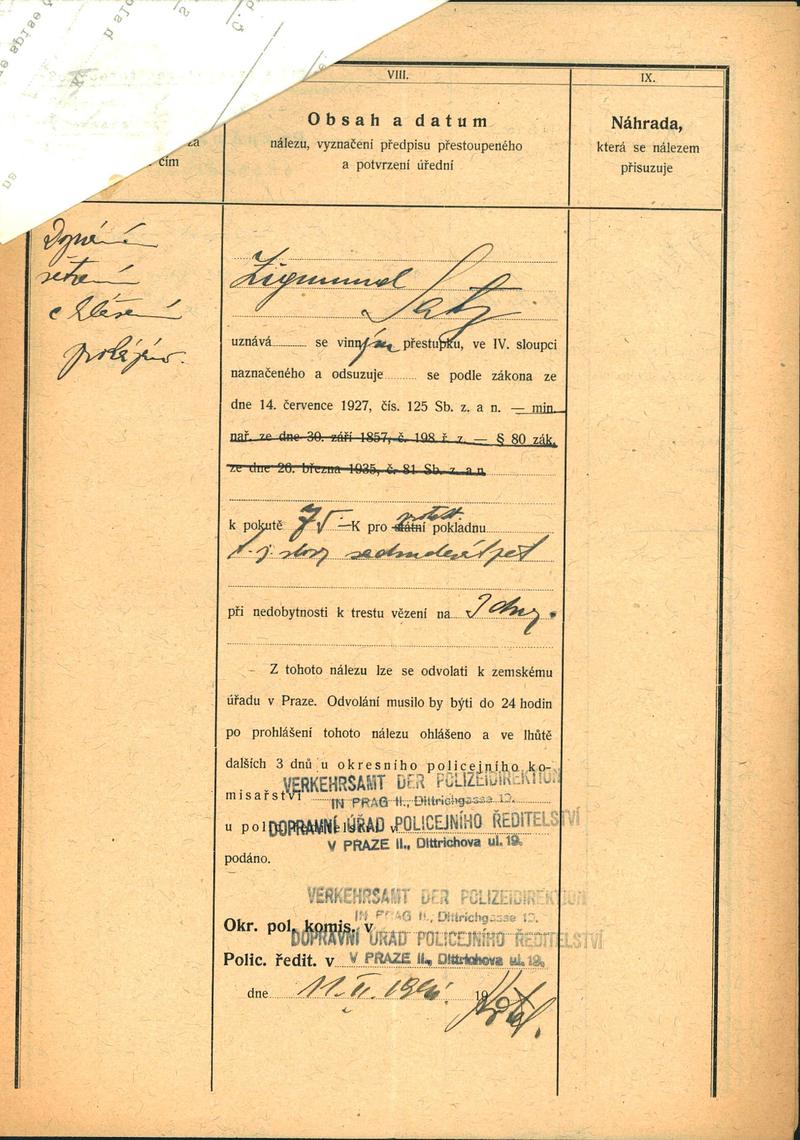 VIII.
IX.
Obsah a datum
nálezu, vyznačení předpisu přestoupeného
a potvrzení úřední
Náhrada,
která se nálezem
přisuzuje
za
čím
Zigmund
uznává se vinným přestupku, ve IV. sloupci
naznačeného a odsuzuje se podle zákona ze
dne 14. července 1927, čís. 125 Sb. z. a n. — min.
nař. ze dne 30. září 1857, č. 198 ř. z. — § 80 zák.
ze dne 26. března 1935, č. 81 Sb. z. a n.
k pokutě 75 — K pro státní pokladnu
t. j. slovy sedmdesátpět
při nedobytnosti k trestu vězení na dny.
— Z tohoto nálezu lze se odvolati k zemskému
úřadu v Praze. Odvolání musilo by býti do 24 hodin
po prohlášení tohoto nálezu ohlášeno a ve lhůtě
dalších 3 dnů u okresního policejního ko-
misařství
VERKEHRSAMT DER POLIZEIDIREKTION
IN PRAG II., Dittrichgasse 19.
DOPRAVNÍ ÚŘAD POLICEJNÍHO ŘEDITELSTVÍ
V PRAZE II., Dittrichova ul. 19.
podáno.
VERKEHRSAMT DER POLIZEIDIREKTION
IN PRAG II., Dittrichgasse 19.
Okr. pol. komis. v
DOPRAVNÍ ÚŘAD POLICEJNÍHO ŘEDITELSTVÍ
Polic. ředit. v V PRAZE II., Dittrichova ul. 19.
dne 11. II. 19